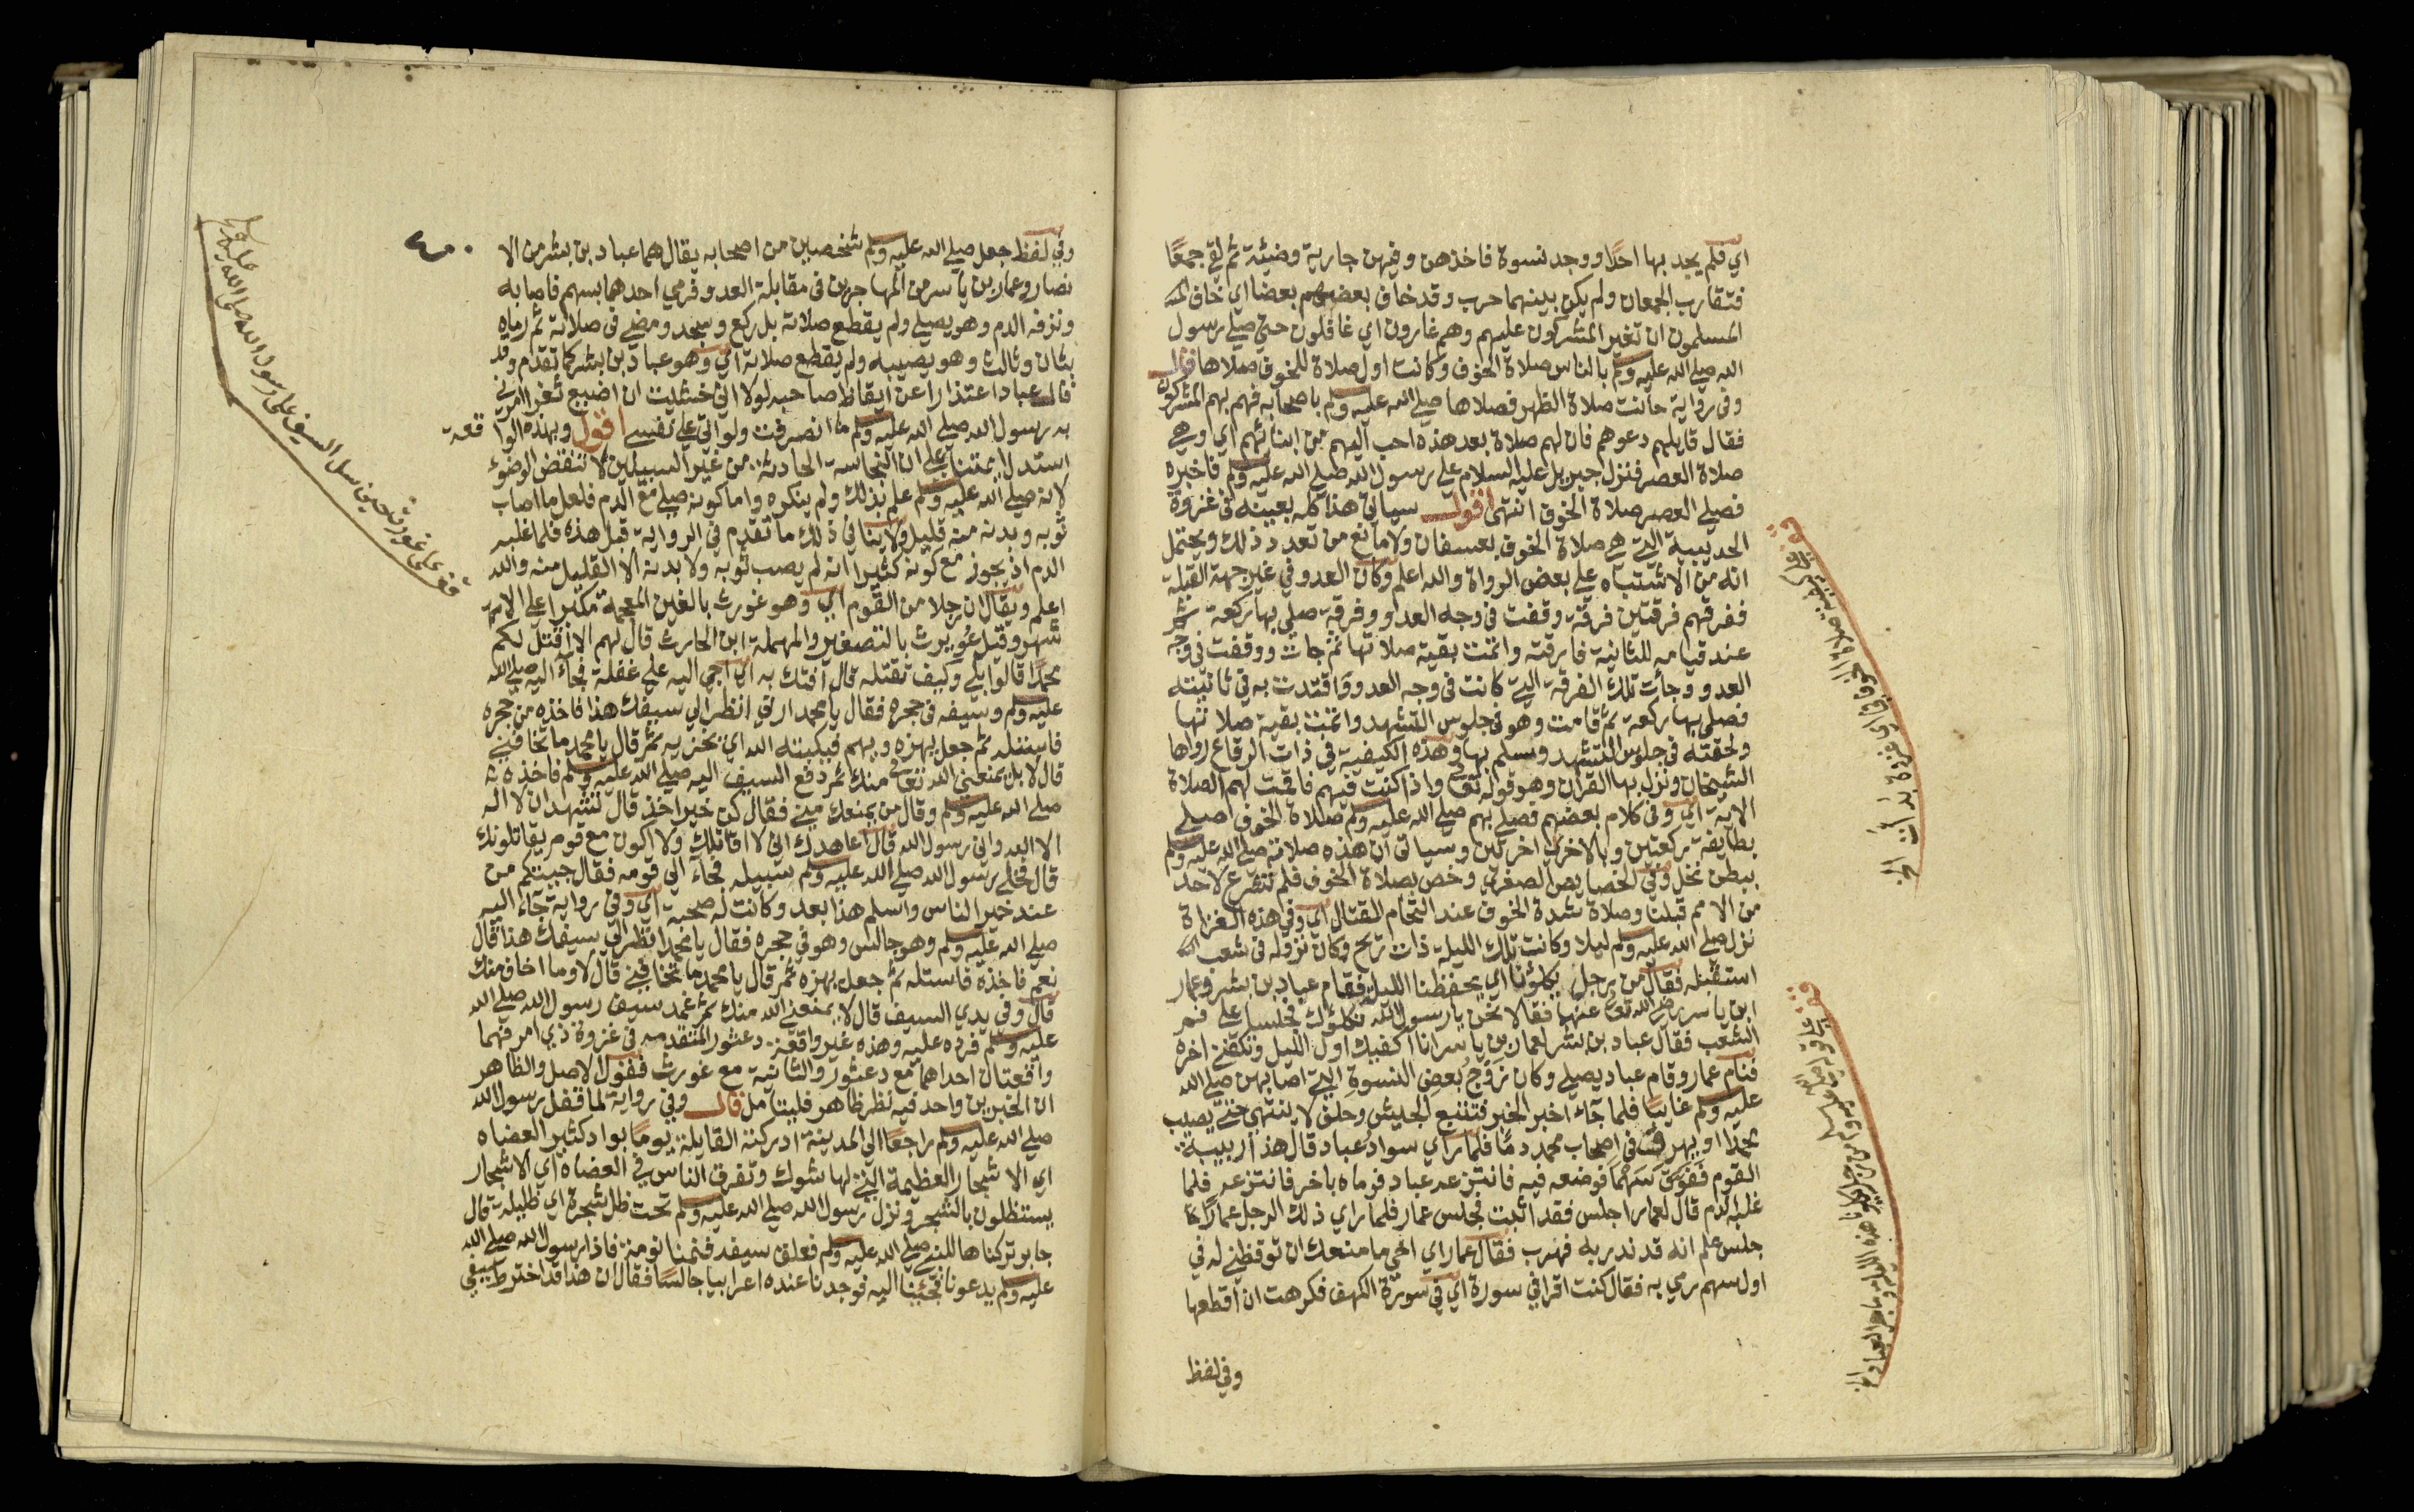 اي فلم يجد بها احدا ووجد نسوة فاخذهن وفيهن جارية وضيئة ثم لقي جمعًا
فتقارب الجمعان ولم يكن بينهما حرب وقد خاف بعضهم بعضا اي خاف
المسلمون ان تغير المشركون عليهم وهم غارون اي غافلون حتى صلى رسول
الله صلى الله عليه وسلم بالناس صلاة الخوف وكانت اول صلاة للخوف صلاها قال
وفي رواية حانت صلاة الظهر فصلاها صلى الله عليه وسلم باصحابه فهم بهم المشركون
فقال قايلهم دعوهم فان لهم صلاة بعد هذه احب اليهم من ابنائهم اي وهي
صلاة العصر فنزل جبريل عليه السلام على رسول الله صلى الله عليه وسلم فاخبره
فصلى العصر صلاة الخوف انتهى اقول سياتي هذا كله بعينه في غزوة
الحديبية التي هي صلاة الخوف بعسفان ولا مانع من تعدد ذلك ويحتمل
انه من الاشتباه على بعض الرواة والله اعلم وكان العدو في غير جهة القبلة
ففرقهم فرقتين فرقة وقفت في وجه العدو وفرقة صلى بها ركعة ثم
عند قيامه للثانية فارقته واتمت بقية صلاتها ثم جات ووقفت في وجه
العدو وجأت تلك الفرقة التي كانت في وجه العدو واقتدت به في ثانيته
فصلى بها ركعة ثم قامت وهو في جلوس التشهد واتمت بقية صلاتها
ولحقته في جلوس التشهد وسلم بها وهذه الكيفية في ذات الرقاع رواها
الشيخان ونزل بها القران وهو قوله تعالى واذا كنت فيهم فاقمت لهم الصلاة
الاية اي وفي كلام بعضهم فصلى بهم صلى الله عليه وسلم صلاة الخوف اصلى
بطايفة ركعتين وبالاخرى اخرتين وسياتي ان هذه صلاته صلى الله عليه وسلم
ببطن نخل وفي الخصايص الصغرى وخص بصلاة الخوف فلم تشرع لاحد
من الامم قبلنا وصلاة شدة الخوف عند التحام القتال اي وفي هذه الغزاة
نزل صلى الله عليه وسلم ليلا وكانت تلك الليلة ذات ريح وكان نزوله في شعب
استقبله فقال من رجل يكلؤنا اي يحفظنا الليلة فقام عباد بن بشر وعمار
ابن ياسر رضي الله تعالى عنهما فقالا نحن يا رسول الله نكلؤك فجلسا على فم
الشعب فقال عباد بن بشر لعمار بن ياسر انا اكفيك اول الليل وتكفني اخره
فنام عمار وقام عباد يصلي وكان زوج بعض النسوة التي اصابهن صلى الله
عليه وسلم غايبًا فلما جاء اخبر الخبر فتتبع الجيش وحلف لا ينتهي حتى يصيب
محمدا او يهرق في اصحاب محمد دمًا فلما راي سواد عباد قال هذا ربيبة
القوم ففوق سهما فوضعه فيه فانتزعه عباد فرماه باخر فانتزعه فلما
غلبه الدم قال لعمار اجلس فقد اثبت فجلس عمار فلما راي ذلك الرجل عمارًا
جلس علم انه قد نذر به فهرب فقال عمار اي اخي ما منعك ان توقظني له في
اول سهم رمي به فقال كنت اقرا في سورة اي في سورة الكهف فكرهت ان اقطعها
وفي لفظ
٤٠
وفي لفظ جعل صلى الله عليه وسلم شخصين من اصحابه يقال هما عباد بن بشر من الا
نصار وعمار بن ياسر من المهاجرين في مقابلة العدو فرمي احدهما بسهم فاصابه
ونزفه الدم وهو يصلي ولم يقطع صلاته بل ركع وسجد ومضي في صلاته ثم رماه
بثان وثالث وهو يصيبه ولم يقطع صلاته اي وهو عباد بن بشر كما تقدم وقد
قال عباد اعتذارا عن ايقاظ صاحبه لولا اني خشيت ان اضيع ثغرا امرني
به رسول الله صلى الله عليه وسلم ما انصرفت ولو اتى على نفسي اقول وبهذه الوا قعة
استدل ايمتنا على ان النجاسة الحادثة من غير السبيلين لا تنقض الوضوء
لانه صلى الله عليه وسلم علم بذلك ولم ينكره واما كونه صلى مع الدم فلعل ما اصاب
ثوبه وبدنه منه قليل ولا ينافي ذلك ما تقدم في الرواية قبل هذه فلما غلبه
الدم اذ يجوز مع كونه كثيرا انه لم يصب ثوبه ولا بدنه الا القليل منه والله
اعلم ويقال ان رجلا من القوم اي وهو غورث بالغين المعجمة مكبرا على الاشهر
وقيل غويرث بالتصغير والمهملة ابن الحارث قال لهم الا اقتل لكم
محمدًا قالوا بلى وكيف تقتله قال افتك به اي اجي اليه على غفلة فجاء اليه صلى الله
عليه وسلم وسيفه في حجره فقال يا محمد ارني انظر الى سيفك هذا فاخذه من حجره
فاستله ثم جعل يهزه ويهم فيكبته الله اي يخزيه ثم قال يا محمد ما تخافني
قال لا بل يمنعني الله تعالى منك ثم دفع السيف اليه صلى الله عليه وسلم فاخذه
صلى الله عليه وسلم وقال من يمنعك مني فقال كن خير اخذ قال تشهد ان لا اله
الا الله واني رسول الله قال اعاهدك اني لا اقاتلك ولا اكون مع قوم يقاتلونك
قال فخلى رسول الله صلى الله عليه وسلم سبيله فجاء الى قومه فقال جيتكم من
عند خير الناس واسلم هذا بعد وكانت له صحبة اي وفي رواية جاء اليه
صلى الله عليه وسلم وهو جالس وهو في حجره فقال يا محمد انظر الى سيفك هذا قال
نعم فاخذه فاستله ثم جعل يهزه ثم قال يا محمد ما تخافني قال لا وما اخاف منك
قال وفي يدي السيف قال لا يمنعني الله منك ثم غمد سيف رسول الله صلى الله
عليه وسلم فرده عليه وهذه غير واقعة دعثور المتقدمه في غزوة ذي امر فهما
واقعتان احداهما مع دعثور والثانية مع غورث فقول الاصل والظاهر
ان الخبرين واحد فيه نظر ظاهر فليتامل قال وفي رواية لما قفل رسول الله
صلى الله عليه وسلم راجعا الى المدينة ادركته القايلة يوما بواد كثير العضاه
اي الاشجار العظيمة التي لها شوك وتفرق الناس في العضاه اي الاشجار
يستظلون بالشجر ونزل رسول الله صلى الله عليه وسلم تحت ظل شجرة اي ظليلة قال
جابر تركناها للنبي صلى الله عليه وسلم فعلق سيفه فنمنا نومة فاذا رسول الله صلى الله
عليه وسلم يدعونا فجئنا اليه فوجدنا عنده اعرابيا جالسًا فقال ان هذا قد اخترط سيفي
قف على غورث حين سل السيف على رسول الله صلى الله عليه وسلم